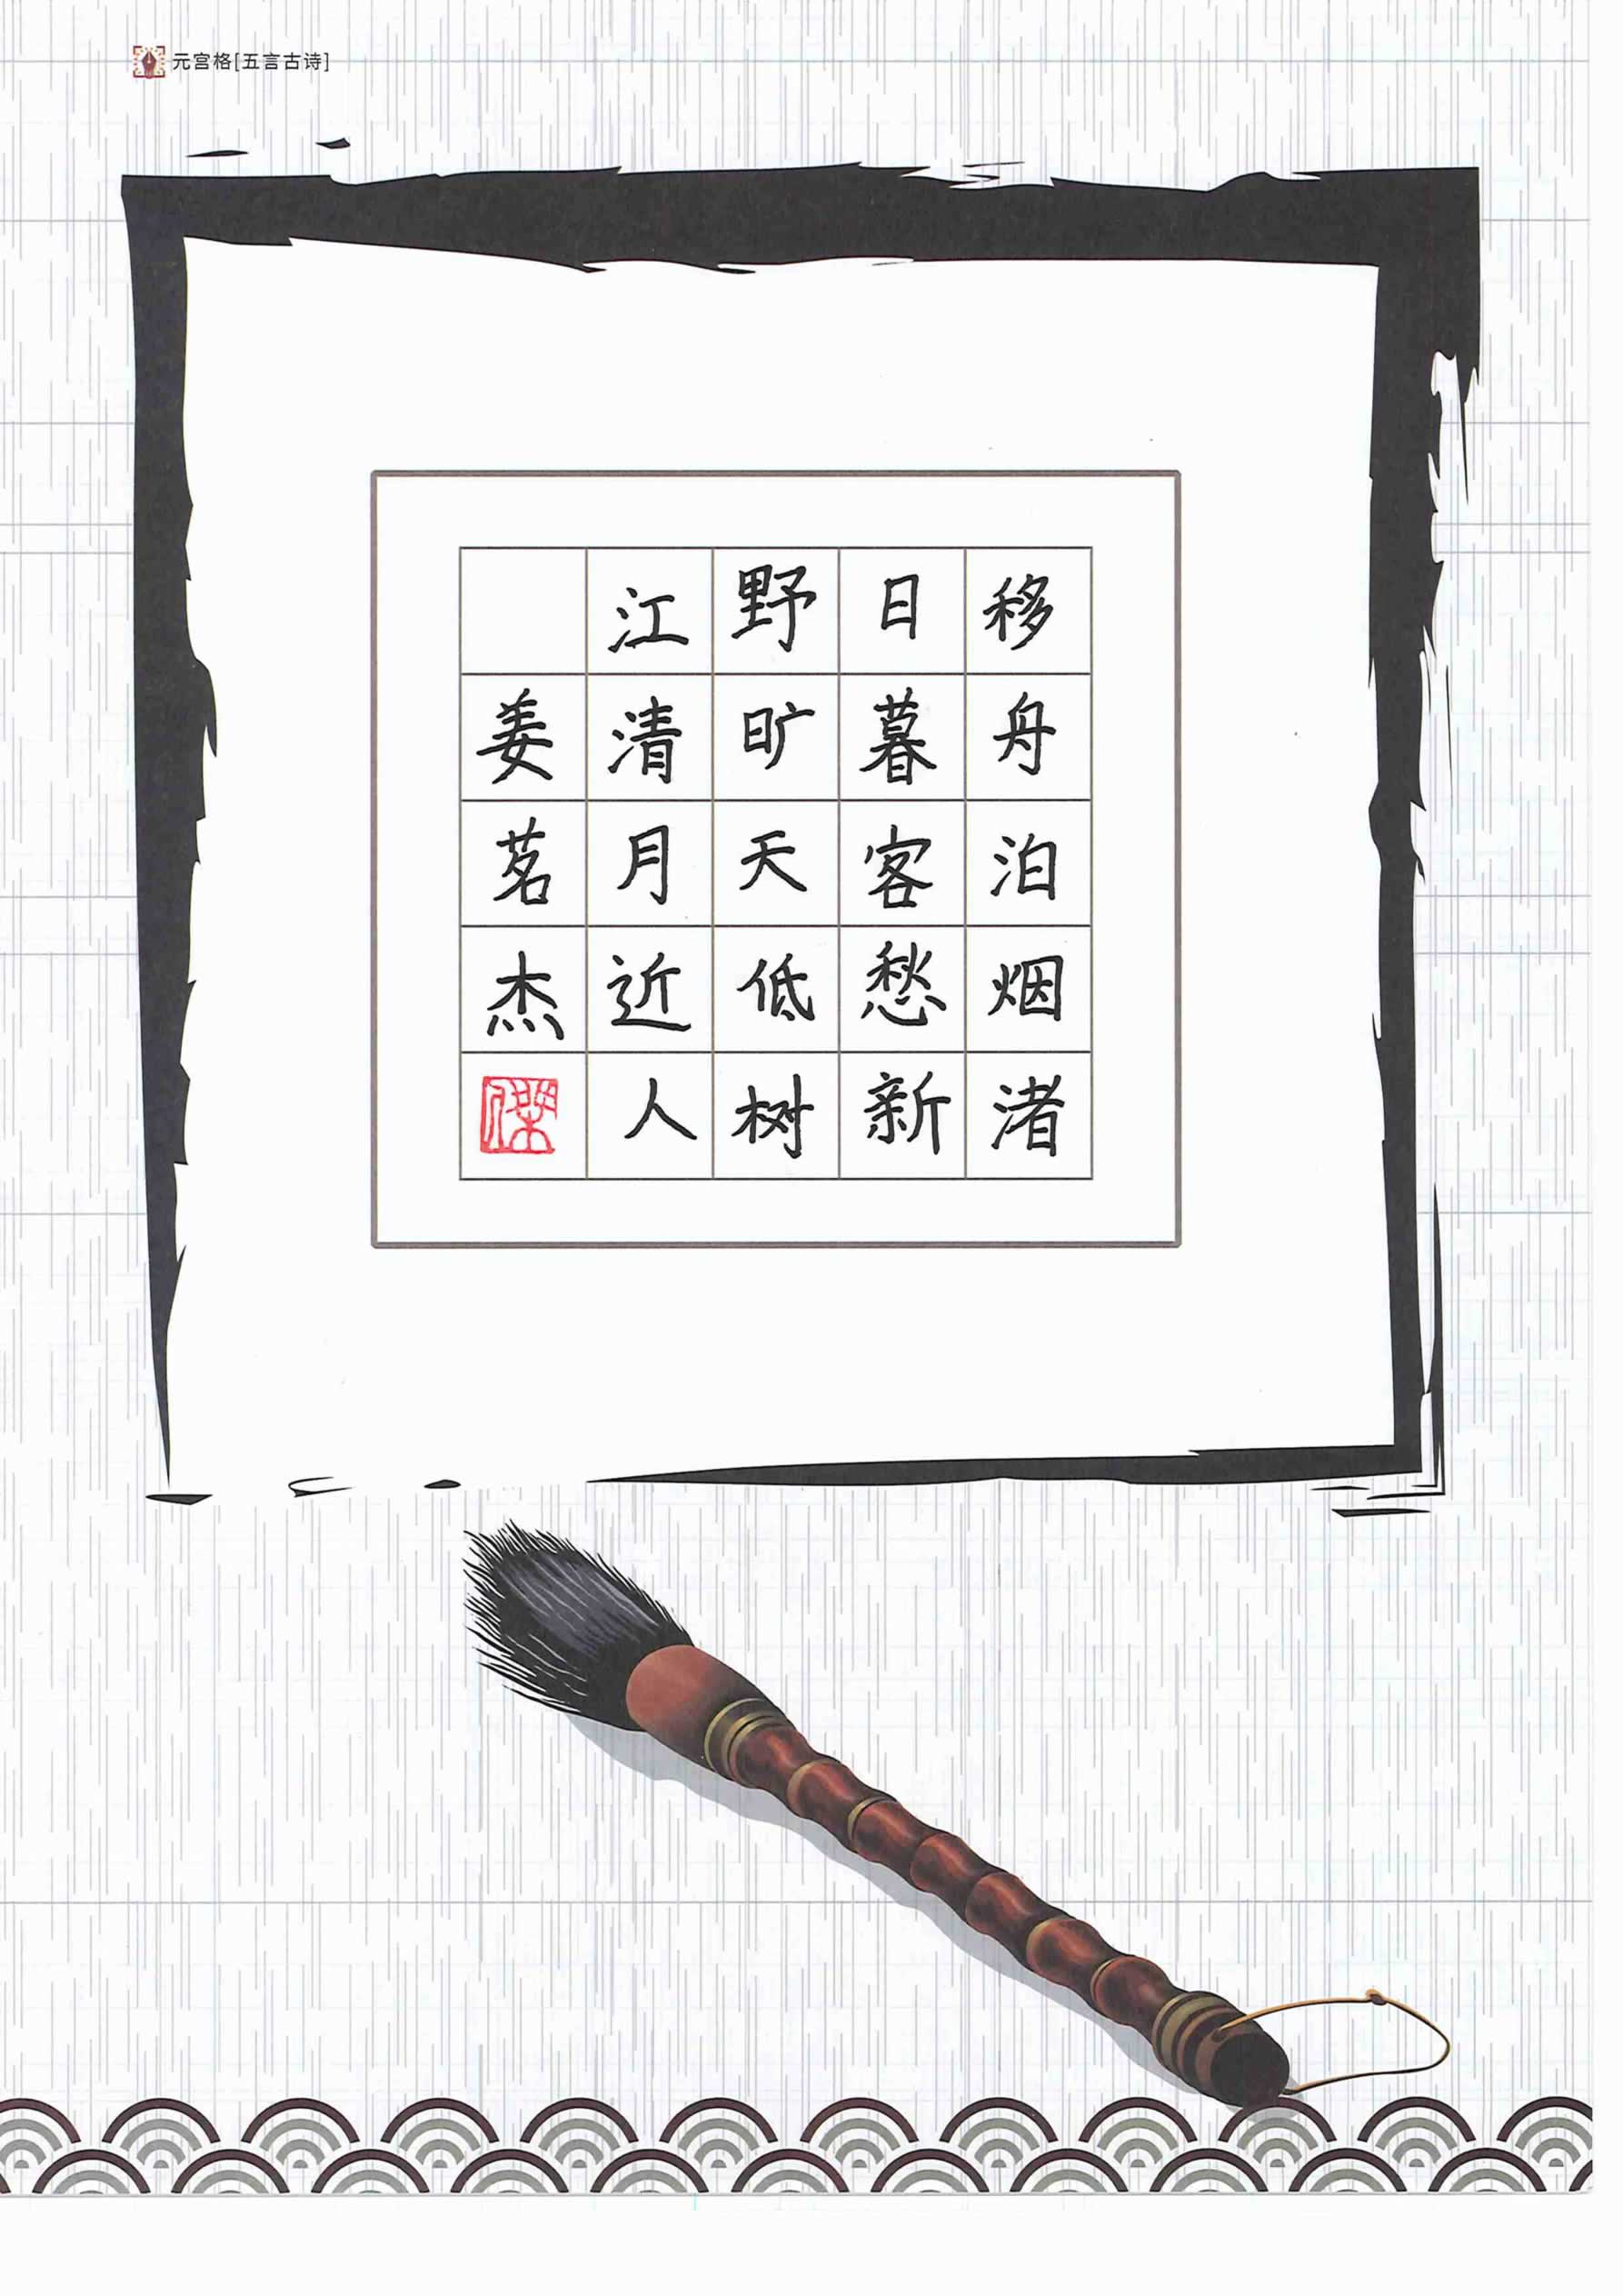 元宫格[五言古诗]
移舟泊烟渚
日暮客愁新
野旷天低树
江清月近人
姜茗杰
傑